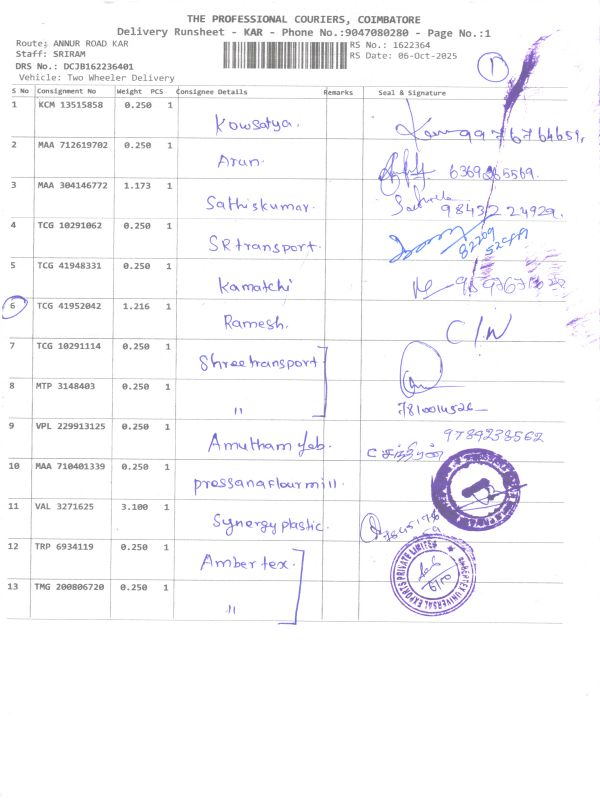 THE PROFESSIONAL COURIERS, COIMBATORE
Delivery Runsheet - KAR - Phone No.:9047080280 - Page No.:1
Route: ANNUR ROAD KAR RS No.: 1622364
Staff: SRIRAM RS Date: 06-Oct-2025
DRS No.: DCJB162236401
Vehicle: Two Wheeler Delivery
1
S No Consignment No Weight PCS Consignee Details Remarks Seal & Signature
1 KCM 13515858 0.250 1 Kowsatya. 9976764659.
2 MAA 712619702 0.250 1 Arun.
3 MAA 304146772 1.173 1 Sathiskumar. 98432 24929.
4 TCG 10291062 0.250 1 SR transport.
5 TCG 41948331 0.250 1 Kamatchi
6 TCG 41952042 1.216 1 Ramesh.
7 TCG 10291114 0.250 1 Shree transport
8 MTP 3148403 0.250 1 "
7810014526
9 VPL 229913125 0.250 1 Amutham Leb. 9789238562
10 MAA 710401339 0.250 1 prassana flour mill.
11 VAL 3271625 3.100 1 Synergy plastic.
12 TRP 6934119 0.250 1 Amber tex.
13 TMG 200806720 0.250 1 "
AMBERTEX UNIVERSAL EXPORTS PRIVATE LIMITED